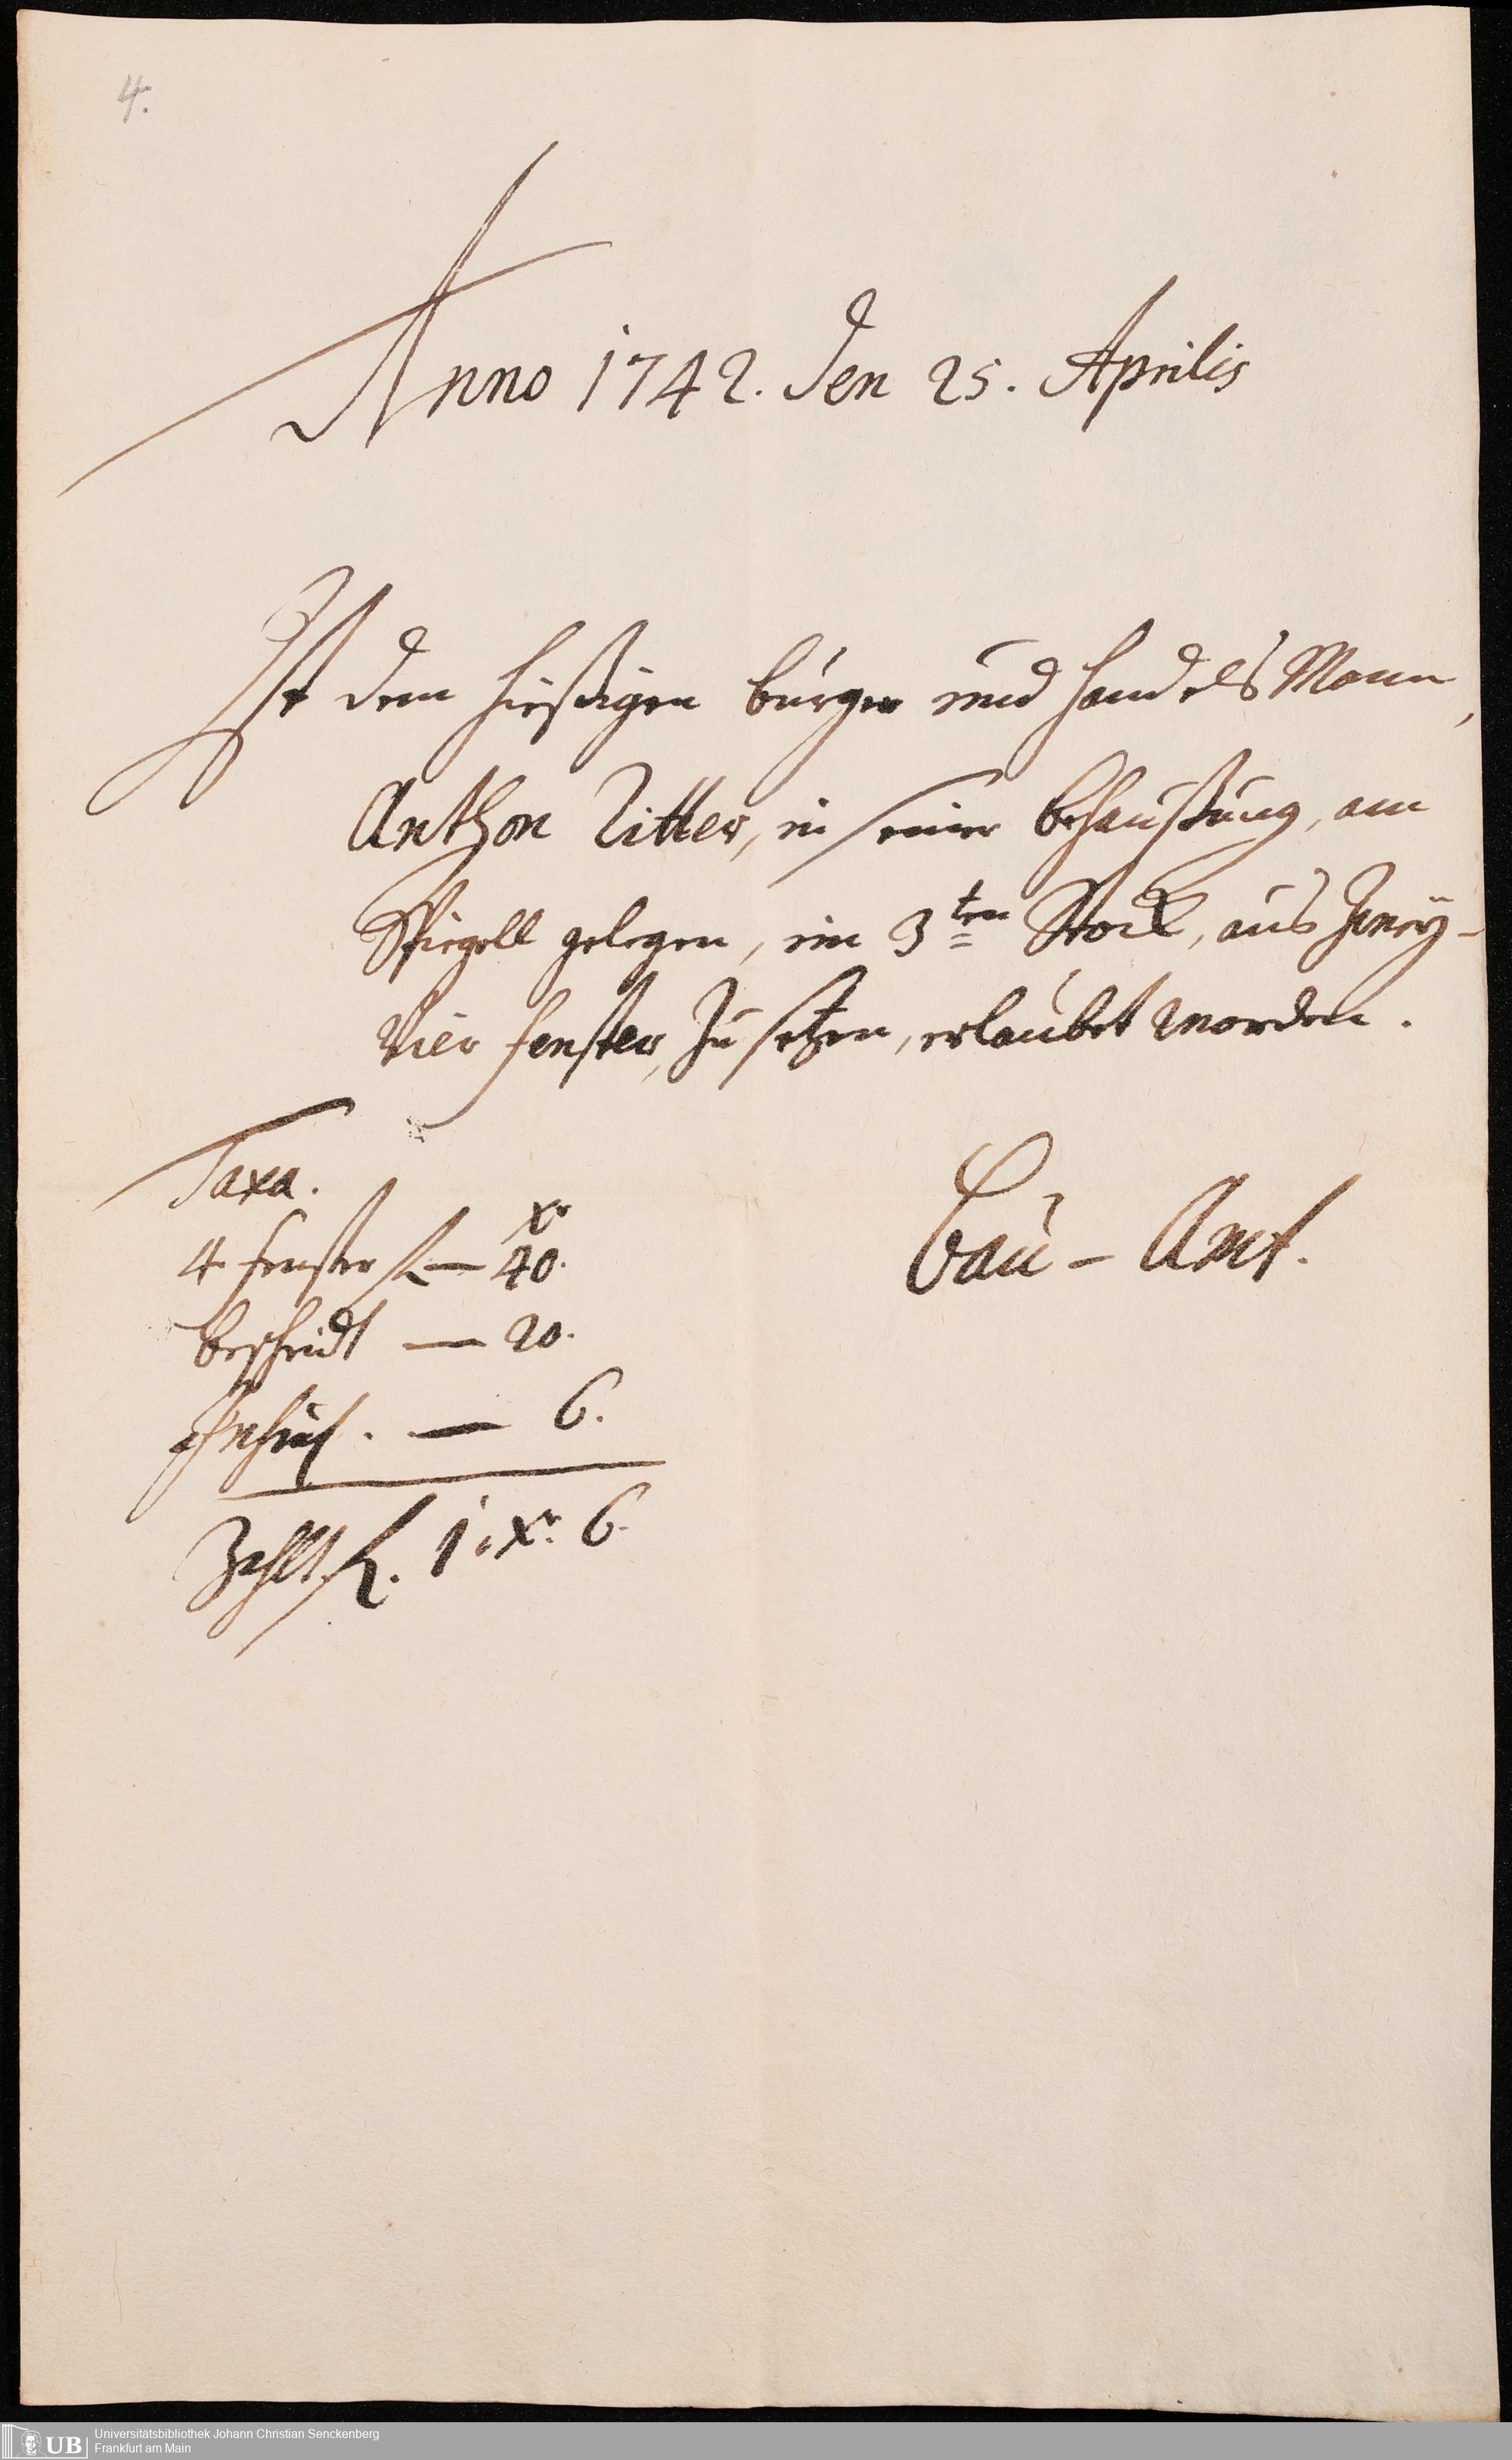 4.
Anno 1742. Den 25. Aprilis
Ist dem hießigen burger und handels Mann,
Anthon Ritter, in seiner behaußung, am
Spiegell gelegen, im 3ten Stock, aus Zwey-
Vier fenster, zu setzen, erlaubet worden.
Taxa.
xr
4 fenster f. — 40.
bescheidt — 20.
— 6.
Zahlt f. 1. xr. 6.
Bau-Amt.
UB Universitätsbibliothek Johann Christian Senckenberg
Frankfurt am Main